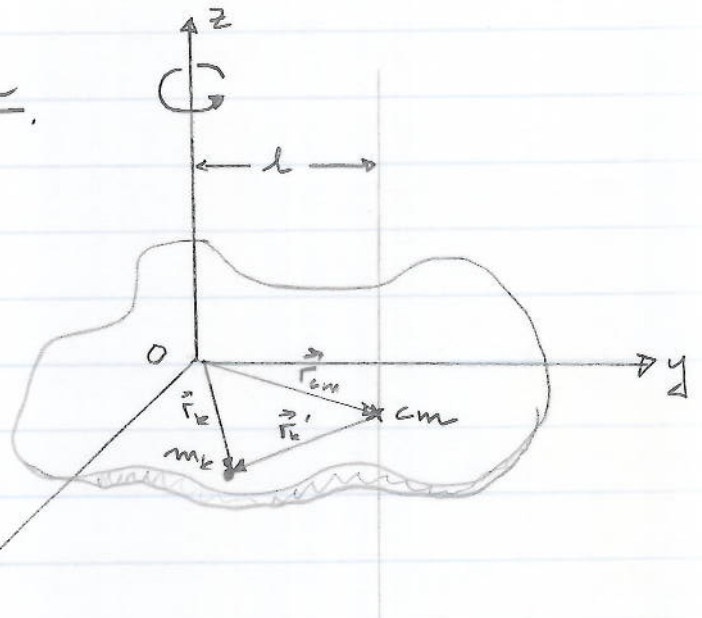 z
l
O
y
r⃗cm
r⃗k
r⃗k'
cm
mk